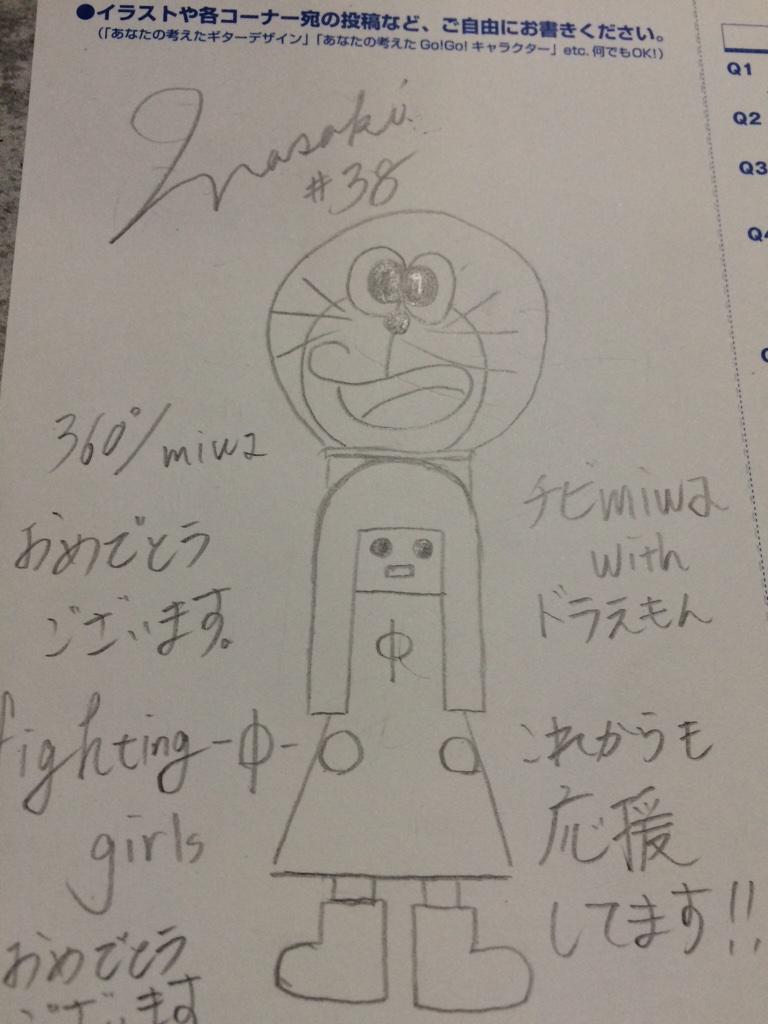 ●イラストや各コーナー宛の投稿など、ご自由にお書きください。
(「あなたの考えたギターデザイン」「あなたの考えた Go!Go! キャラクター」 etc. 何でもOK!)
Q1
Q2
Q3
Masaki
#38
360°/miwa
おめでとう
ございます。
fighting-Φ-
girls
おめでとう
ございます
チビmiwa
with
ドラえもん
Φ
これからも
応援
してます!!